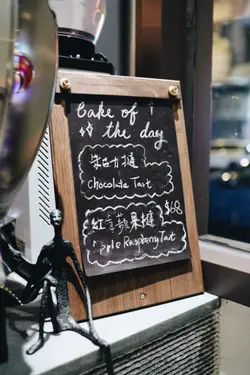 Cake of
the day
朱古力撻
Chocolate Tart
紅莓蘋果撻 $68
Apple Raspberry Tart